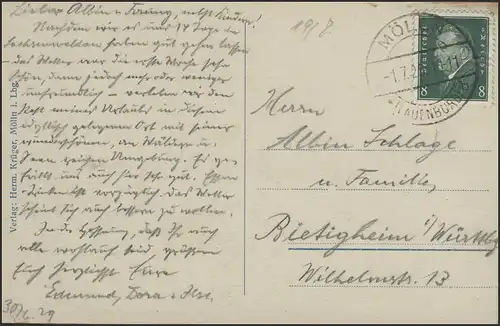 Lieber Albin u. Fanny, nebst Kinder!
Nachdem wir es uns 14 Tage in
haben gut gehen lassen
- das Wetter war die erste Woche sehr
schön, dann jedoch mehr oder weniger
unfreundlich - verleben wir den
Rest meines Urlaubs in diesem
idyllisch gelegenen Ort mit seiner
wunderschönen, an Wäldern u.
Seen reichen Umgebung. Es ge-
fällt uns auch hier sehr gut. Essen u.
Trinken ist vorzüglich. Das Wetter
scheint sich auch bessern zu wollen.
In der Hoffnung, daß Ihr auch
alle wohlauf seid grüßen
Euch herzlichst Eure
Edmund, Dora u. Ilse
30/6. 29
Verlag: Herm. Krüger, Mölln i. Lbg.
MÖLLN
1.7.2
LAUENBURG
Deutsches Reich
8 8
Herrn
Albin Schlage
u. Familie
Bietigheim i/Württbg
Wilhelmstr. 13